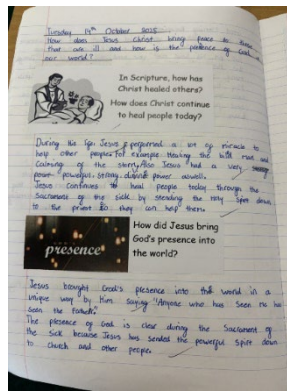 Tuesday 14th October 2025
How does Jesus Christ bring peace to those
that are ill and how is the presence of God in
our world?
In Scripture, how has
Christ healed others?
How does Christ continue
to heal people today?
During his life, Jesus performed a lot of miracle to
help other people, for example healing the blind man and
Calming of the storm. Also Jesus had a very
powerful, strong, divine power aswell.
Jesus continues to heal people today through the
Sacrament of the sick by sending the holy spirt down
to the priest so they can help them.
presence
How did Jesus bring
God's presence into
the world?
Jesus brought God's presence into the world in a
unique way by him saying "Anyone who has seen me has
seen the father."
The presence of God is clear during the Sacrament of
the sick because Jesus has sended the powerful spirt down
to church and other people.